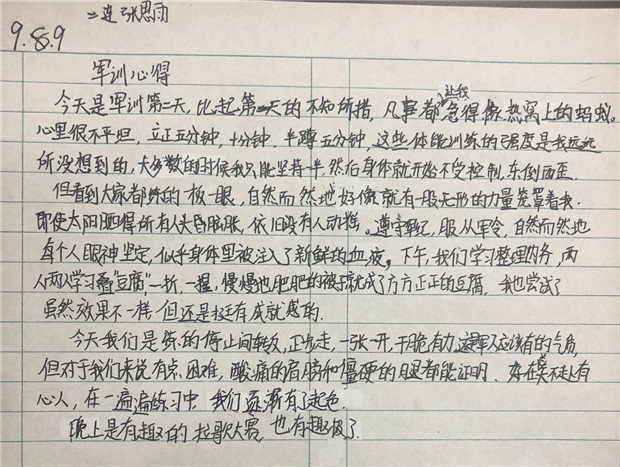 二连张思雨
9.8.9
军训心得
今天是军训第二天，比起第一天的不知所措，凡事都让我急得像热窝上的蚂蚁。
心里很不平坦，立正五分钟，十分钟，半蹲五分钟，这些体能训练的强度是我远远
所没想到的，大多数的时候我只能坚持一半，然后身体就开始不受控制，东倒西歪。
但看到大家都练的极一眼，自然而然地好像就有一股无形的力量笼罩着我.
即使太阳晒得所有人头昏脑胀，依旧没有人动摇。遵守军纪，服从军令，自然而然地
每个人眼神坚定，似乎身体里被注入了新鲜的血液。下午，我们学习整理内务，两
人两人学习叠"豆腐"一折，一握，慢慢地肥肥的被子就成了方方正正的豆腐，我也尝试了
虽然效果不一样，但还是挺有成就感的.
今天我们是练的停止间转灋，正步走，一张一开，干脆有力，这是军人应该有的气质，
但对于我们来说有点困难，酸痛的肩膀和僵硬的腿都能证明.好在莫不走上有
心人，在一遍遍练习中，我们逐渐有了起色.
晚上是有趣的拉歌大赛，也有趣极了.